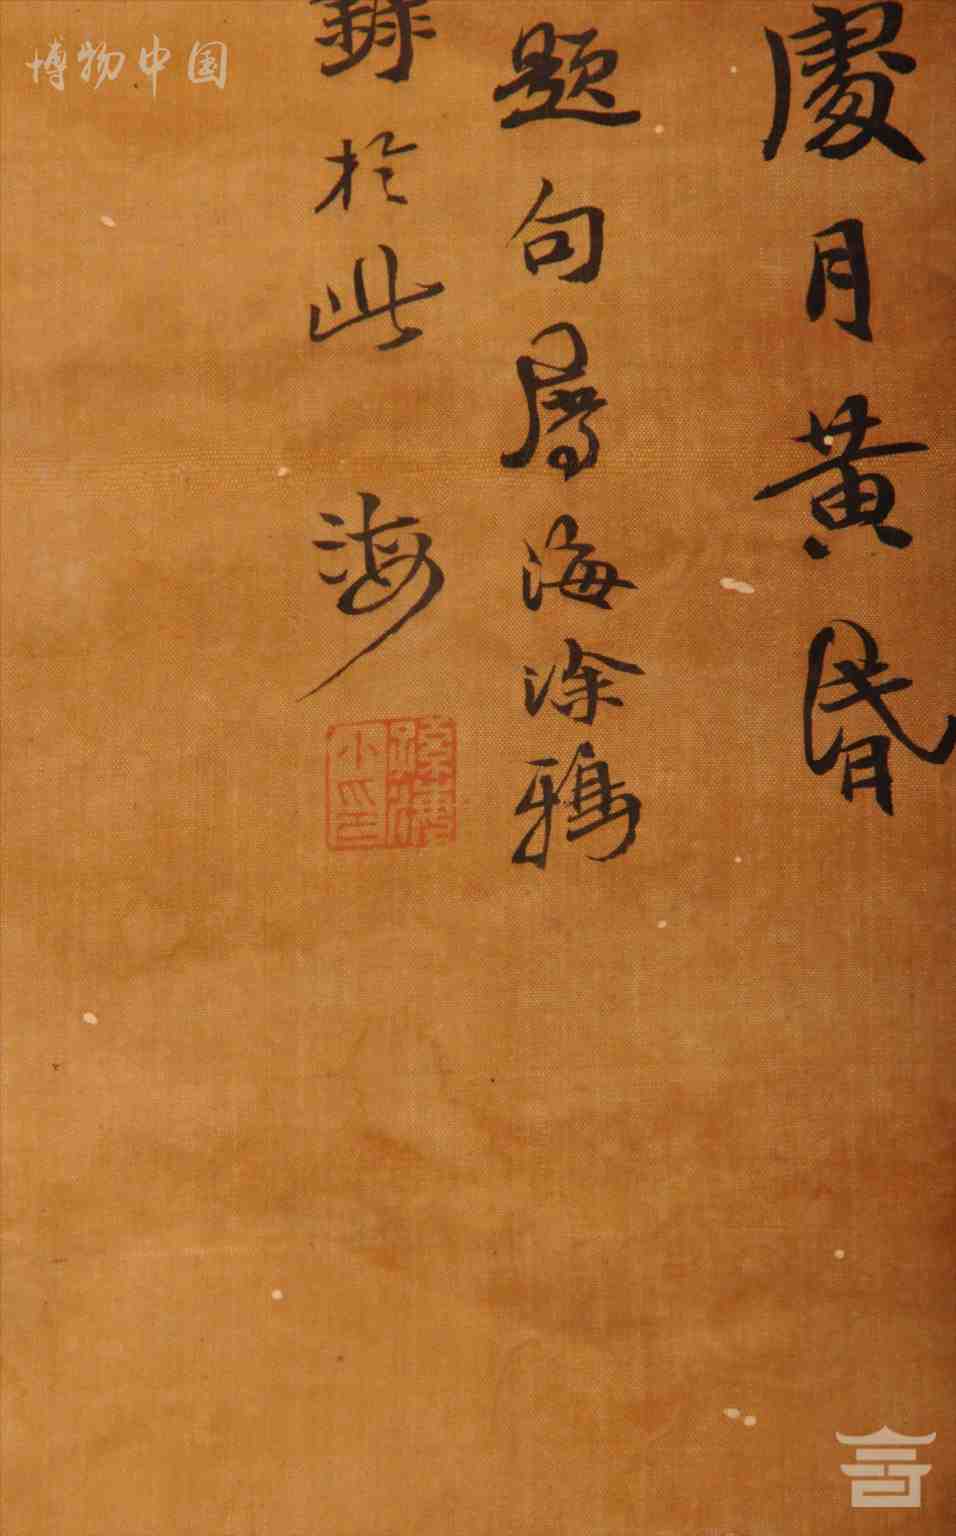 處月黃昏
題句屬海涂鴉
錄於此 海
小印
博物中国